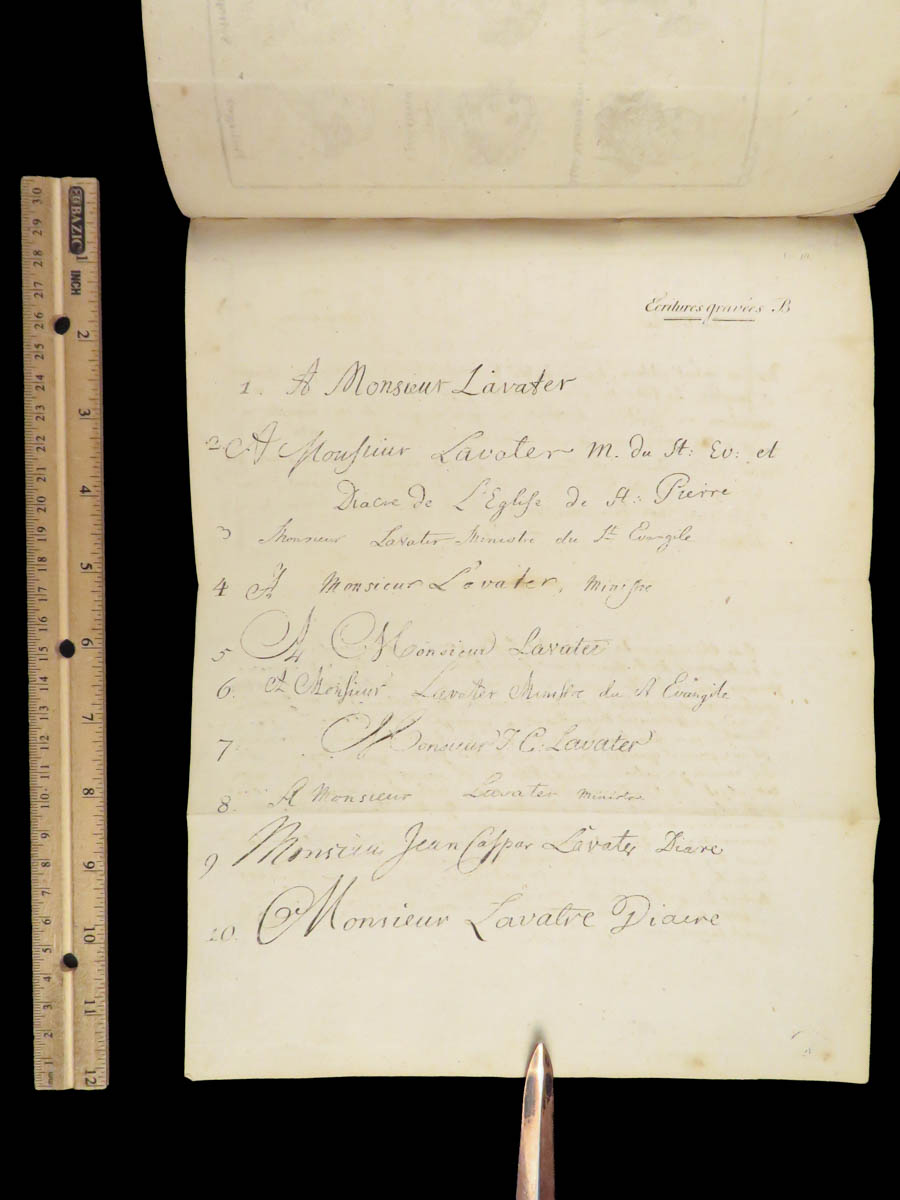 Ecritures gravées B
1. A Monsieur Lavater
2 A Monsieur Lavater M. du St: Ev: et
Diacre de L'Eglise de St: Pierre
3 Monsieur Lavater Ministre du St. Evangile
4 A Monsieur Lavater, Ministre
5 A Monsieur Lavater
6. A Monsieur Lavater Ministre du St Evangile
7 Monsieur J. C. Lavater
8. A Monsieur Lavater Ministre
9 Monsieur Jean Caspar Lavater Diacre
10. Monsieur Lavatre Diacre
BAZIC
INCH
1 2 3 4 5 6 7 8 9 10 11 12
30 29 28 27 26 25 24 23 22 21 20 19 18 17 16 15 14 13 12 11 10 9 8 7 6 5 4 3 2 1